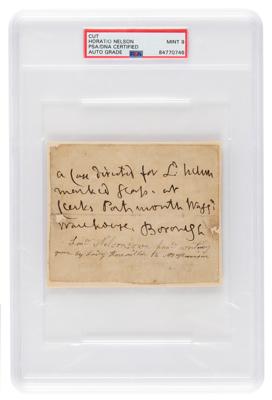 CUT
HORATIO NELSON
PSA/DNA CERTIFIED
AUTO GRADE
MINT 8
PSA
84770746
a Case directed for Ld Nelson
marked Glass. at
Clerks Portsmouth Wagg.
Warehouse. Borough
Lord Nelson's own hand writing
given by Lady Hamilton to